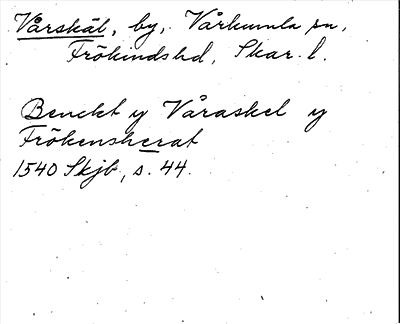 Vårskäl, by, Vårkumla sn,
Frökindshd, Skar. l.
Benckt y Våraskel y
Frökensherat
1540 Skjb, s. 44.